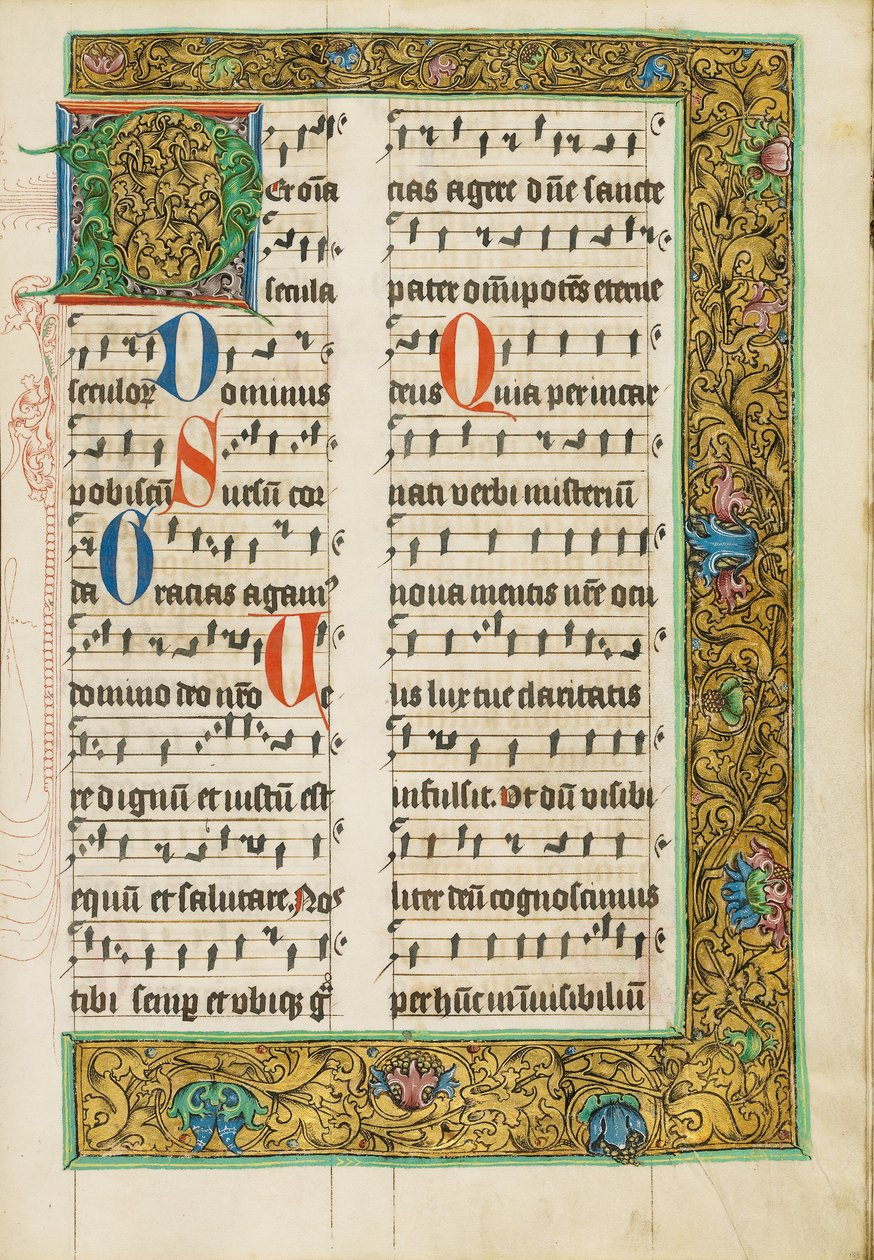 Per om̄ia
secula
seculoꝝ Dominus
vobiscū Sursū cor
da Gracias agamꝰ
domino deo nr̄o Ue
re dignū et iustū est
equū et salutare. Nos
tibi semꝑ et vbiqꝫ gͣ
cias agere dn̄e sancte
pater om̄ipotēs eterne
deus Quia per incar
nati verbi misteriū
noua mentis nr̄e ocu
lis lux tue claritatis
infulsit. Vt dū visibi
liter deū cognoscimus
per hūc in inuisibiliū